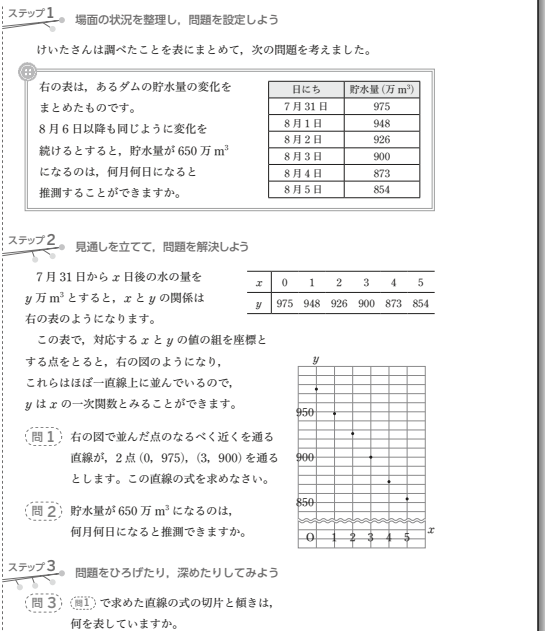 ステップ1 場面の状況を整理し，問題を設定しよう
けいたさんは調べたことを表にまとめて，次の問題を考えました。
右の表は，あるダムの貯水量の変化を
まとめたものです。
8月6日以降も同じように変化を
続けるとすると，貯水量が650万m³
になるのは，何月何日になると
推測することができますか。
日にち 貯水量(万m³)
7月31日 975
8月1日 948
8月2日 926
8月3日 900
8月4日 873
8月5日 854
ステップ2 見通しを立てて，問題を解決しよう
7月31日からx日後の水の量を
y万m³とすると，xとyの関係は
右の表のようになります。
x 0 1 2 3 4 5
y 975 948 926 900 873 854
この表で，対応するxとyの値の組を座標と
する点をとると，右の図のようになり，
これらはほぼ一直線上に並んでいるので，
yはxの一次関数とみることができます。
問1 右の図で並んだ点のなるべく近くを通る
直線が，2点(0，975)，(3，900)を通る
とします。この直線の式を求めなさい。
問2 貯水量が650万m³になるのは，
何月何日になると推測できますか。
y
950
900
850
O 1 2 3 4 5 x
ステップ3 問題をひろげたり，深めたりしてみよう
問3 問1で求めた直線の式の切片と傾きは，
何を表していますか。